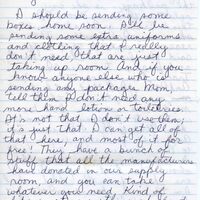 I should be sending some
boxes home soon. I'll be
sending some extra uniforms
and clothing that I really
don't need that are just
taking up room. And if you
know anyone else who is
sending any packages Mom,
tell them I don't need any
more hand lotion or toiletries.
It's not that I don't use them;
it's just that I can get all of
that here, and most of it for
free! They have a bunch of
stuff that all the manufacturers
have donated in our supply
room, and you can take
whatever you need. Kind of